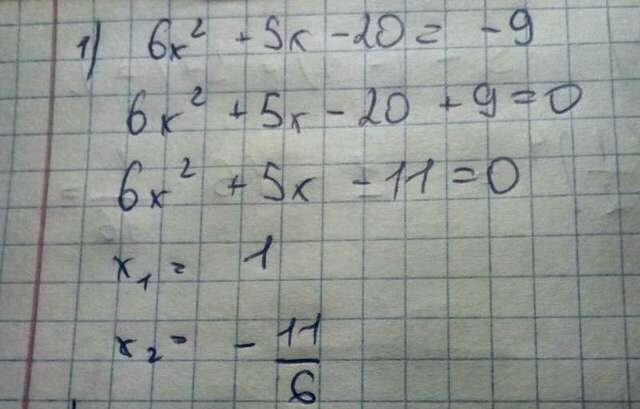 1) 6x² + 5x - 20 = -9
6x² + 5x - 20 + 9 = 0
6x² + 5x - 11 = 0
x₁ = 1
x₂ = - 11/6